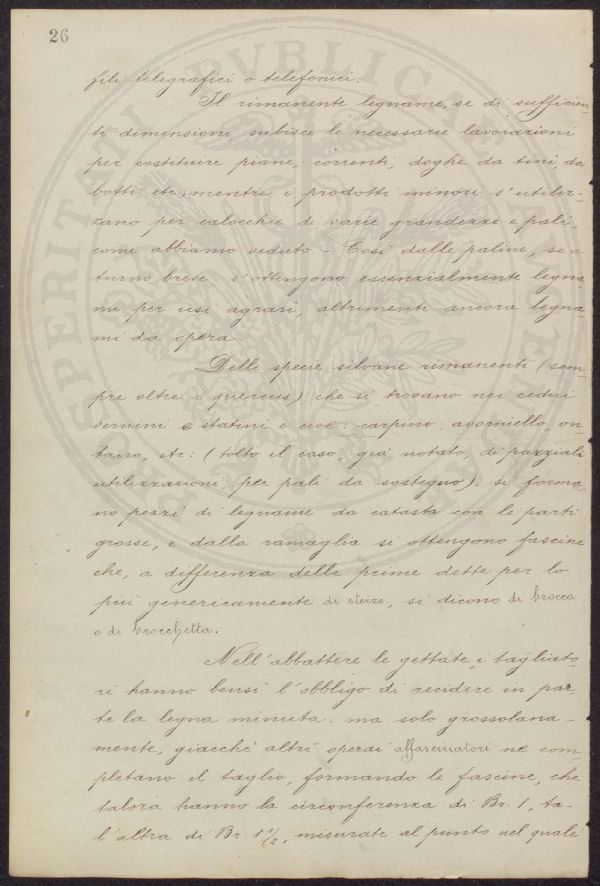 26
fili telegrafici o telefonici.
Il rimanente legname, se di sufficien-
ti dimensioni, subisce le necessarie lavorazioni
per costituire piane, correnti, doghe da tini, da
botti etc; mentre i prodotti minori s'utiliz-
zano per calocchie di varie grandezze e pali,
come abbiamo veduto. – Così dalle paline, se a
turno breve, s'ottengono essenzialmente legna-
mi per usi agrari, altrimenti ancora legna-
mi da opera.
Delle specie silvane rimanenti (sem-
pre oltre i quercus) che si trovano nei cedui
vernini e statini e cioè: carpino, avorniello, on-
tano, etc: (tolto il caso, già notato, di parziali
utilizzazioni per pali da sostegno), si forma-
no pezzi di legname da catasta con le parti
grosse, e dalla ramaglia si ottengono fascine
che, a differenza delle prime dette per lo
più genericamente di sterzo, si dicono di brocca
o di brocchetta.
Nell'abbattere le gettate, i tagliato-
ri hanno bensì l'obbligo di recidere in par-
te la legna minuta: ma solo grossolana-
mente, giacchè altri operai affascinatori ne com-
pletano il taglio, formando le fascine, che
talora hanno la circonferenza di Br. 1, ta-
l'altra di Br. 1 1/2, misurate al punto nel quale
PROSPERITATI PVBLICAE AVGENDAE